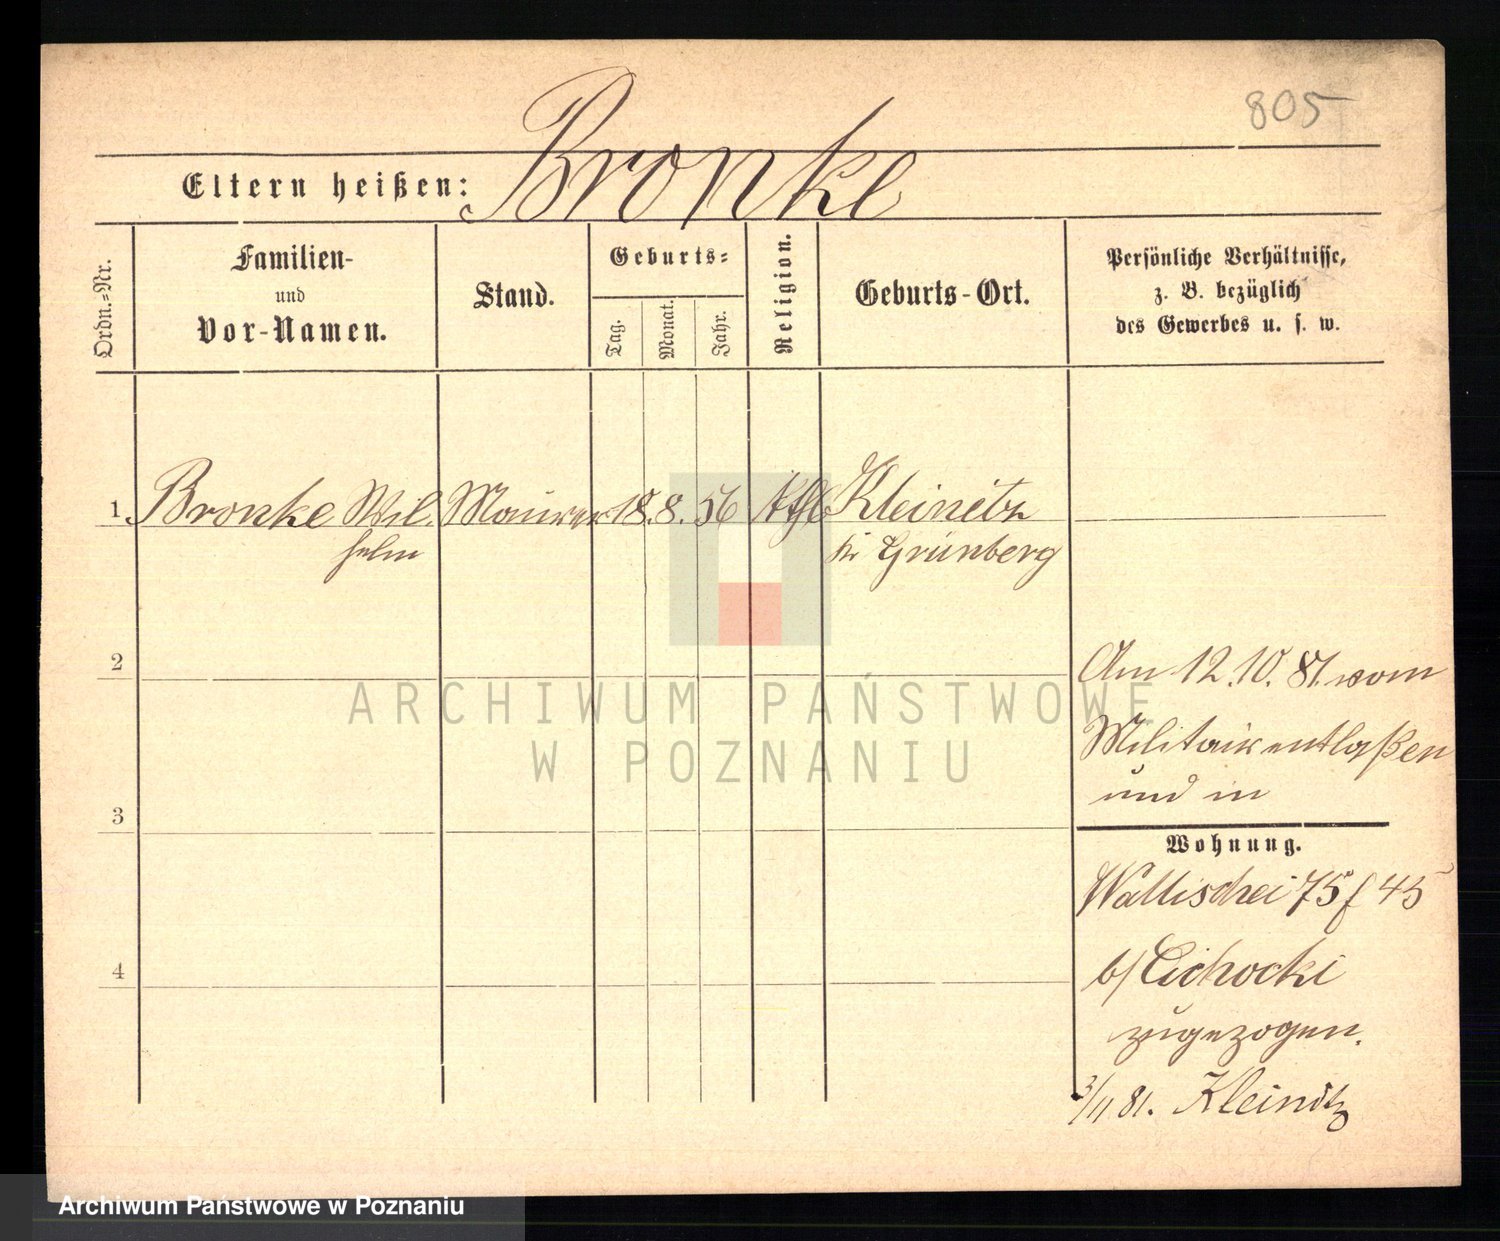 805
Bronke
Eltern heißen:
Ordn.=Nr.
Familien-
und
Vor-Namen.
Stand.
Geburts=
Tag.
Monat.
Jahr.
Religion.
Geburts-Ort.
Persönliche Verhältnisse,
z. B. bezüglich
des Gewerbes u. s. w.
1. Bronke Wil- Maurer 18. 8. 56 Kthl Kleinitz
helm Kr Grünberg
2
Am 12.10.81. vom
Militair entlaßen
und in
3
Wohnung.
Wallischei 75 f 45
4
b/ Cichocki
zugezogen.
3/11 81. Kleinitz
ARCHIWUM PAŃSTWOWE
W POZNANIU
Archiwum Państwowe w Poznaniu